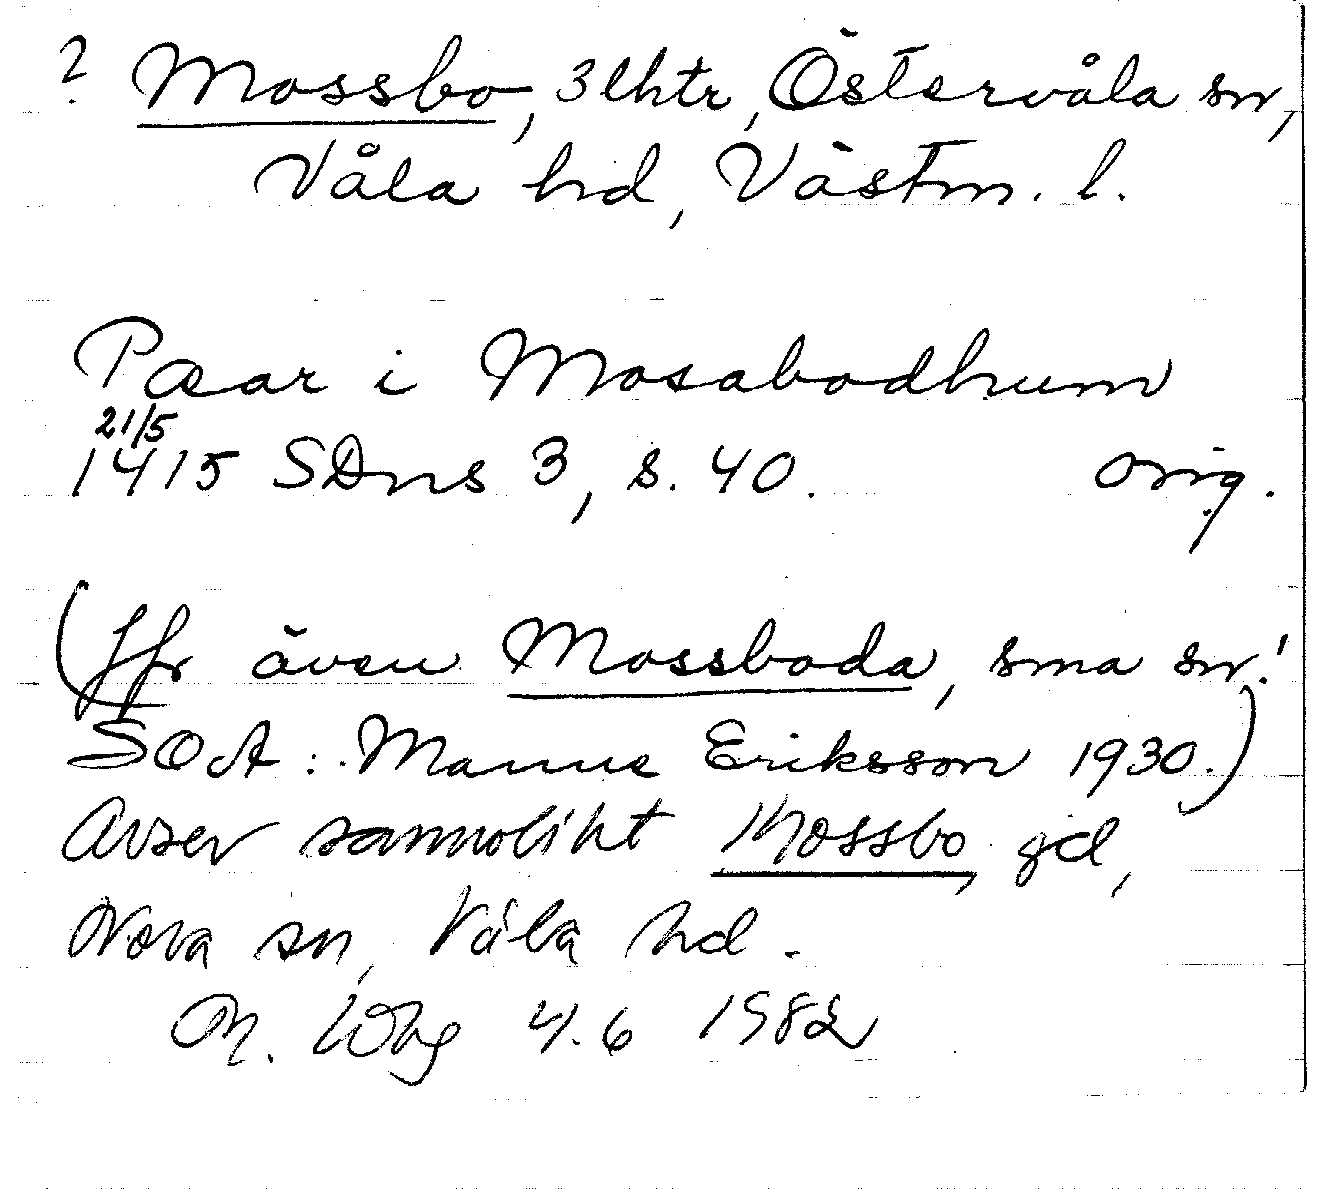 ? Mossbo, 3 lhtr, Östervåla sn,
Våla hd, Västm. l.
Pæar i Mosabodhum
21/5
1415 SDns 3, s. 40. orig.
(Jfr även Mossboda, sma sn!
SOA: Manne Eriksson 1930.)
Avser sannolikt Mossbo, gd,
Nora sn, Våla hd.
M. Wbg 4.6 1982